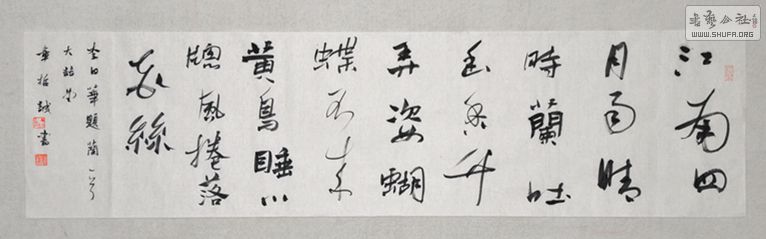 江南四
月雨晴
時蘭吐
幽香竹
弄姿蝴
蝶不來
黃鳥睡小
牕風捲落
花絲
李日華題蘭一首
書
書藝公社
WWW.SHUFA.ORG